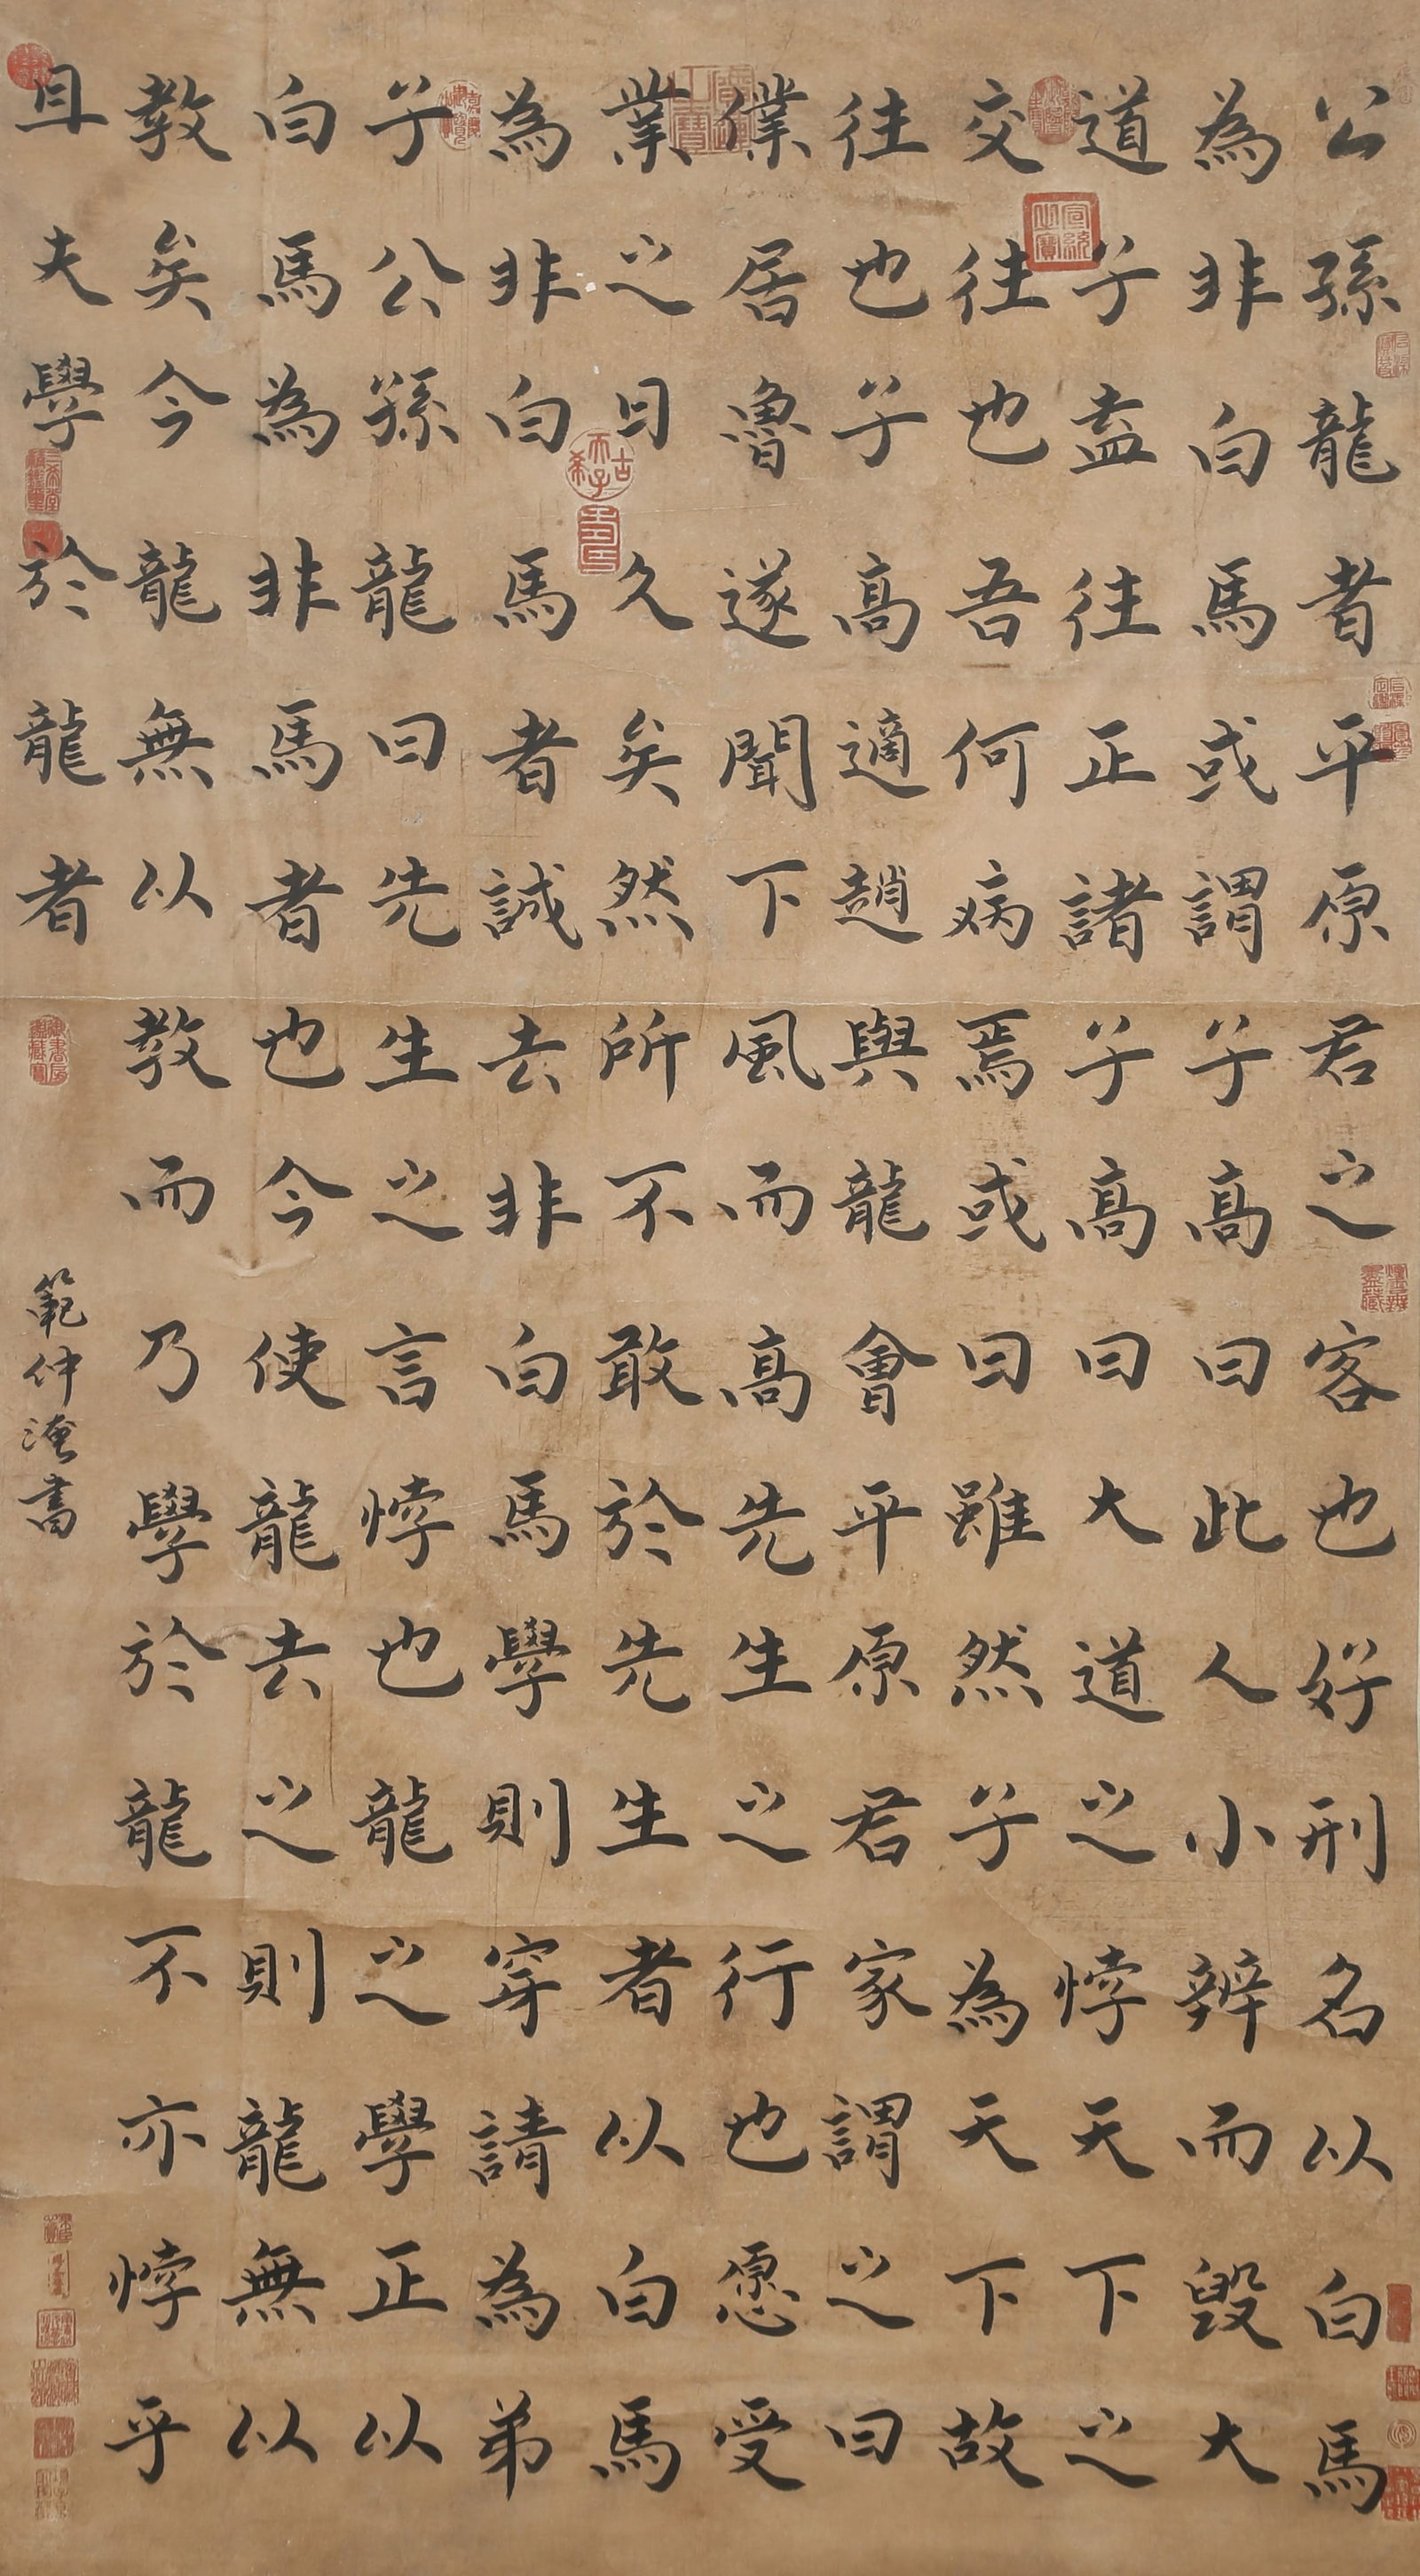 公孫龍者平原君之客也好刑名以白馬
為非白馬或謂子高曰此人小辨而毀大
道子盍往正諸子高曰大道之悖天下之
交往也吾何病焉或曰雖然子為天下故
往也子高適趙與龍會平原君家謂之曰
僕居魯遂聞下風而高先生之行也愿受
業之日久矣然所不敢於先生者以白馬
為非白馬者誠去非白馬學則穿請為弟
子公孫龍曰先生之言悖也龍之學正以
白馬為非馬者也今使龍去之則龍無以
教矣今龍無以教而乃學於龍不亦悖乎
且夫學於龍者
範仲淹書
宣統之寶
古希天子
壽